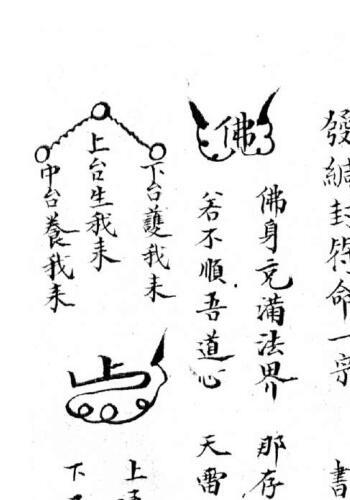 發緘封符命一宗 書
佛
佛身充滿法界 那存
若不順吾道心 天雷
下台護我来
上台生我来
中台養我来
上
下